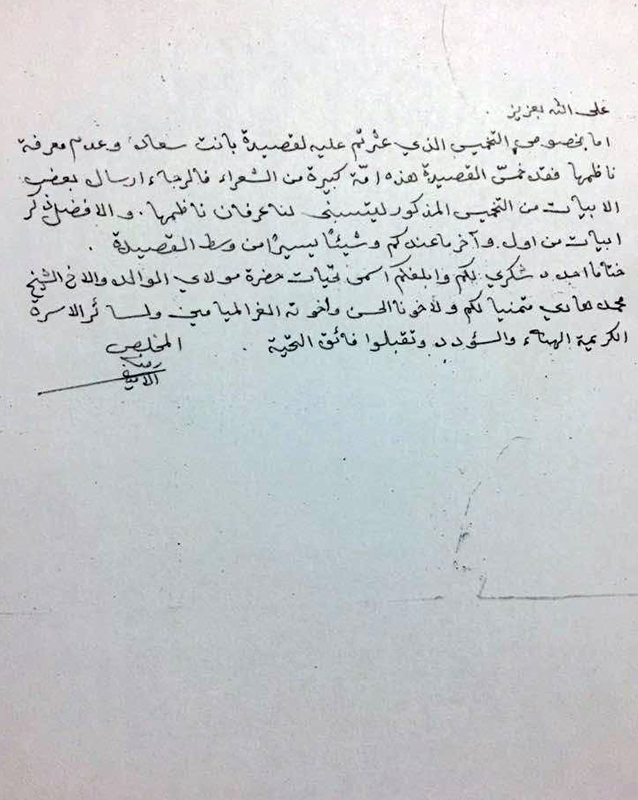 على الله بعزيز .
اما بخصوص التخميس الذي عثرتم عليه لقصيدة بانت سعاد وعدم معرفة
ناظمها فقد خمّس القصيدة هذه امّة كبيرة من الشعراء فالرجاء ارسال بعض
الابيات من التخميس المذكور ليتسنى لنا عرفان ناظمها . و الافضل ذكر
ابيات من اول وآخر ما عندكم وشيئاً يسيراً من وسط القصيدة .
ختاما اجدد شكري لكم وابلغكم اسمى تحيات حضرة مولاي الوالد والاخ الشيخ
محمد هادي متمنيا لكم ولاخونا الحسن وأخوته الغر الميامين ولسائر الاسرة
الكريمة الهناء والسؤدد وتقبلوا فائق التحية . المخلص
رضا
الاميني